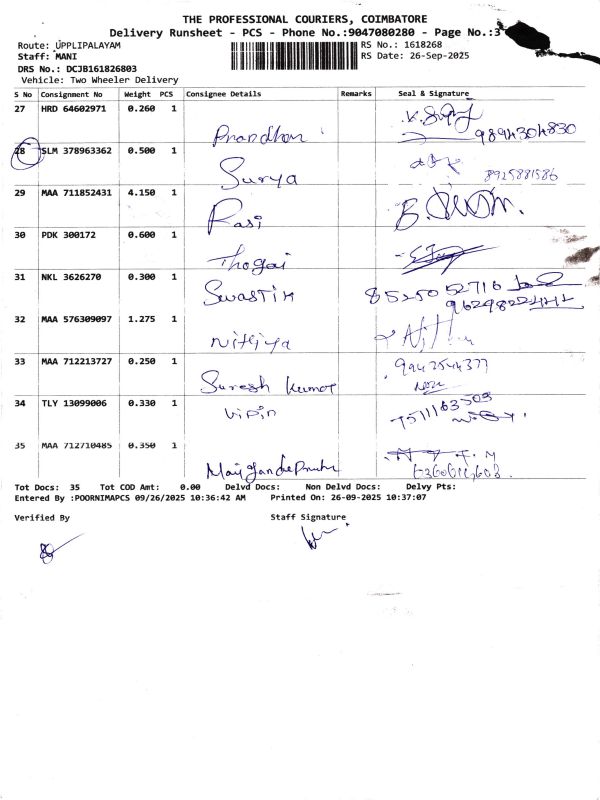 THE PROFESSIONAL COURIERS, COIMBATORE
Delivery Runsheet - PCS - Phone No.:9047080280 - Page No.:3
Route: UPPLIPALAYAM RS No.: 1618268
Staff: MANI RS Date: 26-Sep-2025
DRS No.: DCJB161826803
Vehicle: Two Wheeler Delivery
S No Consignment No Weight PCS Consignee Details Remarks Seal & Signature
27 HRD 64602971 0.260 1
Prandhan 9894304830
28 SLM 378963362 0.500 1
Surya 8925881586
29 MAA 711852431 4.150 1
Rasi
30 PDK 300172 0.600 1
Thogai
31 NKL 3626270 0.300 1
Swastik 8525052716
9629822444
32 MAA 576309097 1.275 1
Nithya
33 MAA 712213727 0.250 1
Suresh Kumar 9942544377
34 TLY 13099006 0.330 1
Vipin 7511163503
35 MAA 712710485 0.350 1
Tot Docs: 35 Tot COD Amt: 0.00 Delvd Docs: Non Delvd Docs: Delvy Pts:
Entered By :POORNIMAPCS 09/26/2025 10:36:42 AM Printed On: 26-09-2025 10:37:07
Verified By Staff Signature